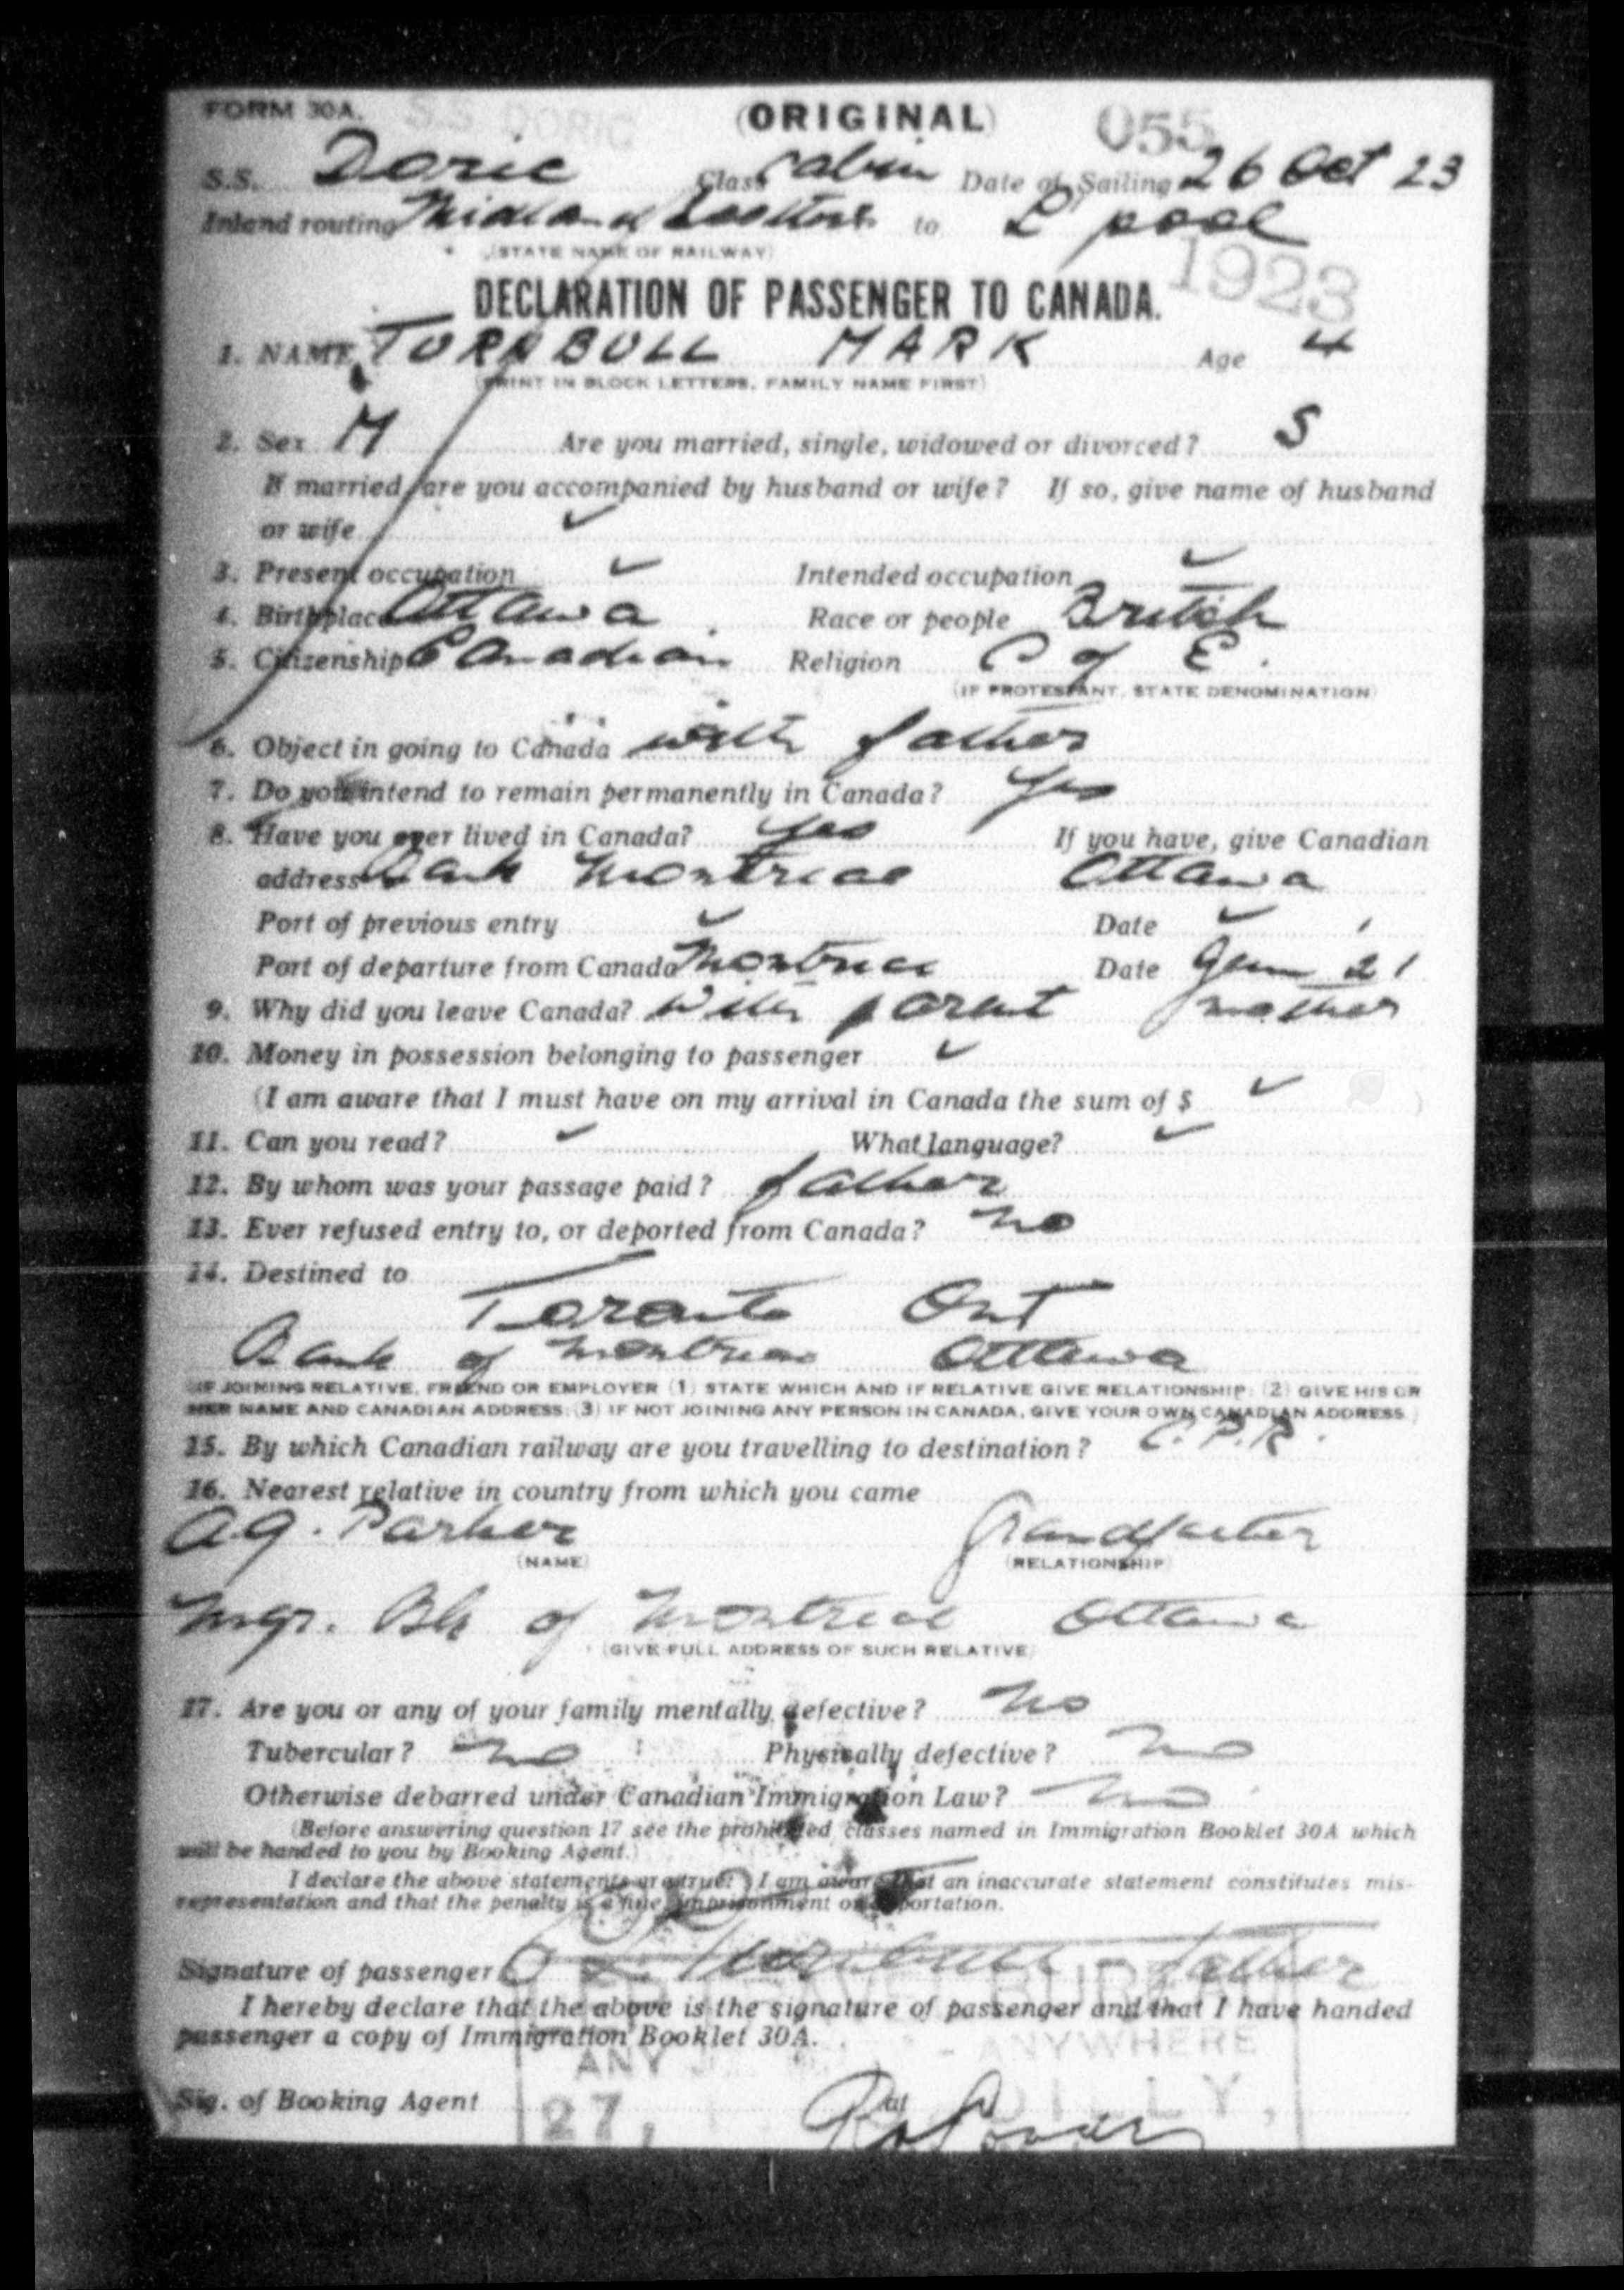 FORM 30A. S.S. DORIC (ORIGINAL) 055
S.S. Doric Class Cabin Date of Sailing 26 Oct 23
Inland routing Midland to L'pool
(STATE NAME OF RAILWAY)
1923
DECLARATION OF PASSENGER TO CANADA.
1. NAME TURNBULL MARK Age 4
(PRINT IN BLOCK LETTERS, FAMILY NAME FIRST)
2. Sex M Are you married, single, widowed or divorced? S
If married, are you accompanied by husband or wife? If so, give name of husband
or wife
3. Present occupation Intended occupation
4. Birthplace Ottawa Race or people British
5. Citizenship Canadian Religion C of E.
(IF PROTESTANT, STATE DENOMINATION)
6. Object in going to Canada with father
7. Do you intend to remain permanently in Canada? Yes
8. Have you ever lived in Canada? Yes If you have, give Canadian
address Bank Montreal Ottawa
Port of previous entry Date
Port of departure from Canada Montreal Date 21
9. Why did you leave Canada? With parent mother
10. Money in possession belonging to passenger
(I am aware that I must have on my arrival in Canada the sum of $ )
11. Can you read? What language?
12. By whom was your passage paid? father
13. Ever refused entry to, or deported from Canada? no
14. Destined to
Toronto Ont
Bank of Montreal Ottawa
(IF JOINING RELATIVE, FRIEND OR EMPLOYER (1) STATE WHICH AND IF RELATIVE GIVE RELATIONSHIP; (2) GIVE HIS OR
HER NAME AND CANADIAN ADDRESS; (3) IF NOT JOINING ANY PERSON IN CANADA, GIVE YOUR OWN CANADIAN ADDRESS.)
15. By which Canadian railway are you travelling to destination? C.P.R.
16. Nearest relative in country from which you came
A G. Parker Grandfather
(NAME) (RELATIONSHIP)
Mgr. Bk of Montreal Ottawa
(GIVE FULL ADDRESS OF SUCH RELATIVE)
17. Are you or any of your family mentally defective? No
Tubercular? no Physically defective? no
Otherwise debarred under Canadian Immigration Law? no
(Before answering question 17 see the prohibited classes named in Immigration Booklet 30A which
will be handed to you by Booking Agent.)
I declare the above statements are true. I am aware that an inaccurate statement constitutes mis-
representation and that the penalty is a fine, imprisonment or deportation.
Signature of passenger Turnbull - father
I hereby declare that the above is the signature of passenger and that I have handed
passenger a copy of Immigration Booklet 30A.
ANY - ANYWHERE
Sig. of Booking Agent
27,